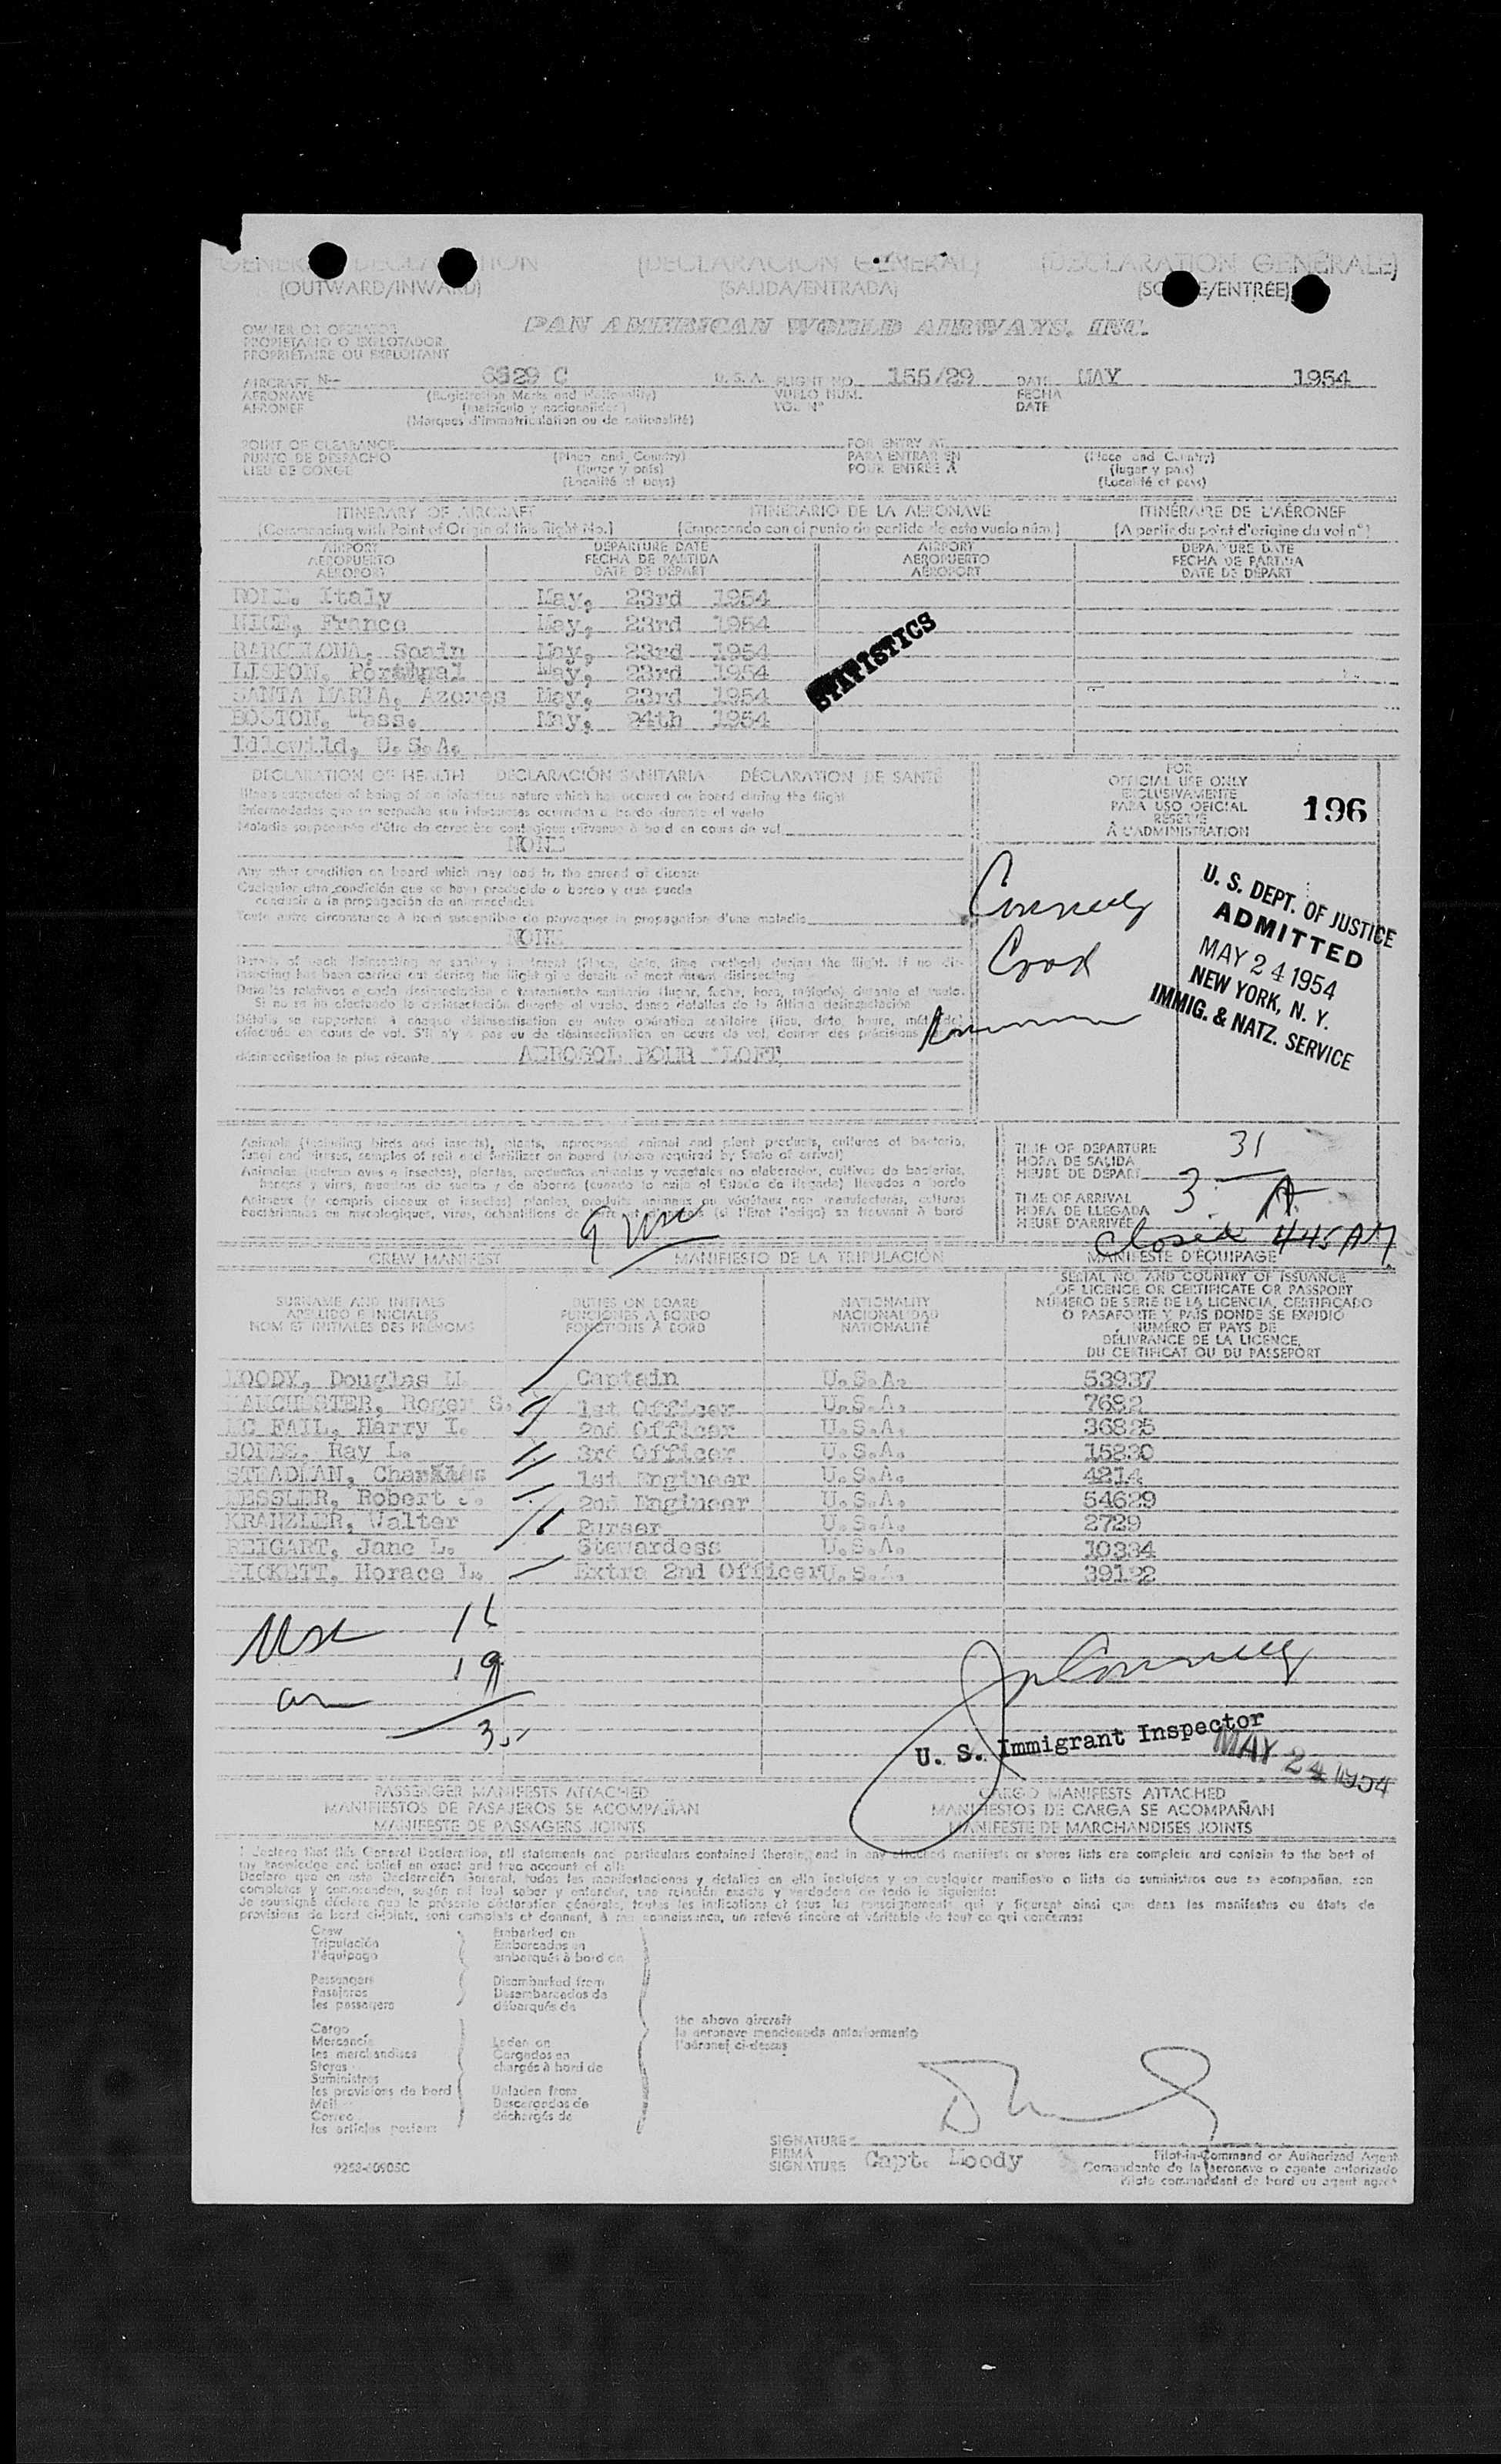 GENERAL DECLARATION (DECLARACIÓN GENERAL) (DÉCLARATION GÉNÉRALE)
(OUTWARD/INWARD) (SALIDA/ENTRADA) (SORTIE/ENTRÉE)
OWNER OR OPERATOR
PROPIETARIO O EXPLOTADOR
PROPRIÉTAIRE OU EXPLOITANT
PAN AMERICAN WORLD AIRWAYS, INC.
AIRCRAFT N- 6529 C U. S. A. FLIGHT NO. 155/29 DATE MAY 1954
AERONAVE (Registration Marks and Nationality) VUELO NUM. FECHA
AERONEF (matrícula y nacionalidad) VOL Nº DATE
(Marques d'immatriculation ou de nationalité)
POINT OF CLEARANCE FOR ENTRY AT
PUNTO DE DESPACHO (Place and Country) PARA ENTRAR EN (Place and Country)
LIEU DE CONGE (lugar y país) POUR ENTRÉE À (lugar y país)
(Localité et pays) (Localité et pays)
ITINERARY OF AIRCRAFT ITINERARIO DE LA AERONAVE ITINÉRAIRE DE L'AÉRONEF
(Commencing with Point of Origin of this flight No.) (Empezando con el punto de partida de este vuelo núm.) (A partir du point d'origine du vol nº)
AIRPORT DEPARTURE DATE AIRPORT DEPARTURE DATE
AEROPUERTO FECHA DE PARTIDA AEROPUERTO FECHA DE PARTIDA
AÉROPORT DATE DE DÉPART AÉROPORT DATE DE DÉPART
ROME, Italy May, 23rd 1954
NICE, France May, 23rd 1954
BARCELONA, Spain May, 23rd 1954
LISBON, Portugal May, 23rd 1954
SANTA MARIA, Azores May, 23rd 1954
BOSTON, Mass. May, 24th 1954
Idlewild, U.S.A.
STATISTICS
DECLARATION OF HEALTH DECLARACIÓN SANITARIA DÉCLARATION DE SANTÉ
Illness suspected of being of an infectious nature which has occured on board during the flight
Enfermedades que se sospecha son infecciosas ocurridas a bordo durante el vuelo
Maladie soupçonnée d'être de caractère contagieux survenue à bord en cours de vol
NONE
Any other condition on board which may lead to the spread of disease
Cualquier otra condición que se haya producido a bordo y que pueda
conducir a la propagación de enfermedades
Toute autre circonstance à bord susceptible de provoquer la propagation d'une maladie
NONE
Details of each disinsecting or sanitary treatment (Place, date, time method) during the flight. If no dis-
insecting has been carried out during the flight give details of most recent disinsecting
Detalles relativos a cada desinsectación o tratamiento sanitario (lugar, fecha, hora, método) durante el vuelo.
Si no se ha efectuado la desinsectación durante el vuelo, dense detalles de la última desinsectación
Détails se rapportant à chaque désinsectisation ou autre opération sanitaire (lieu, date, heure, méthode)
effectuée en cours de vol. S'il n'y a pas eu de désinsectisation en cours de vol, donner des précisions
désinsectisation la plus récente
FOR
OFFICIAL USE ONLY
EXCLUSIVAMENTE
PARA USO OFICIAL
RÉSERVÉ
À L'ADMINISTRATION
196
Connelly
U. S. DEPT. OF JUSTICE
ADMITTED
MAY 24 1954
NEW YORK, N. Y.
IMMIG. & NATZ. SERVICE
Animals (including birds and insects), plants, unprocessed animal and plant products, cultures of bacteria,
fungi and viruses, samples of soil and fertilizer on board (where required by State of arrival)
Animales (incluso aves e insectos), plantas, productos animales y vegetales no elaborados, cultivos de bacterias,
hongos y virus, muestras de suelos y de abonos (cuando lo exija el Estado de llegada) llevados a bordo
Animaux (y compris oiseaux et insectes) plantes, produits animaux ou végétaux non manufacturés, cultures
bactériennes ou mycologiques, virus, échantillons de terre et d'engrais (si l'État l'exige) se trouvant à bord
TIME OF DEPARTURE
HORA DE SALIDA
HEURE DE DÉPART
31
TIME OF ARRIVAL
HORA DE LLEGADA
HEURE D'ARRIVÉE
3: A
Closed 445 AM
CREW MANIFEST MANIFIESTO DE LA TRIPULACIÓN MANIFESTE D'ÉQUIPAGE
SURNAME AND INITIALS DUTIES ON BOARD NATIONALITY SERIAL NO. AND COUNTRY OF ISSUANCE
APELLIDO E INICIALES FUNCIONES A BORDO NACIONALIDAD OF LICENCE OR CERTIFICATE OR PASSPORT
NOM ET INITIALES DES PRÉNOMS FONCTIONS À BORD NATIONALITÉ NÚMERO DE SERIE DE LA LICENCIA, CERTIFICADO
O PASAPORTE Y PAÍS DONDE SE EXPIDIÓ
NUMÉRO ET PAYS DE
DÉLIVRANCE DE LA LICENCE,
DU CERTIFICAT OU DU PASSEPORT
MOODY, Douglas M. Captain U.S.A. 53937
MANCHESTER, Roger S. 1st Officer U.S.A. 7682
MC FAIL, Harry I. 2nd Officer U.S.A. 36825
JONES, Ray L. 3rd Officer U.S.A. 15830
STEADMAN, Charles 1st Engineer U.S.A. 4214
KESSLER, Robert J. 2nd Engineer U.S.A. 54629
KRANZLER, Walter Purser U.S.A. 2729
REIGART, Jane L. Stewardess U.S.A. 10334
PICKETT, Horace L. Extra 2nd Officer U.S.A. 39122
16
19
U. S. Immigrant Inspector
MAY 24 1954
PASSENGER MANIFESTS ATTACHED CARGO MANIFESTS ATTACHED
MANIFIESTOS DE PASAJEROS SE ACOMPAÑAN MANIFIESTOS DE CARGA SE ACOMPAÑAN
MANIFESTE DE PASSAGERS JOINTS MANIFESTE DE MARCHANDISES JOINTS
I declare that this General Declaration, all statements and particulars contained therein, and in any attached manifests or stores lists are complete and contain to the best of
my knowledge and belief an exact and true account of all:
Declaro que en esta Declaración General, todas las manifestaciones y detalles en ella incluidos y en cualquier manifiesto o lista de suministros que se acompañan, son
completos y comprenden, según mi leal saber y entender, una relación exacta y verdadera de todo lo siguiente:
Je soussigné déclare que la présente déclaration générale, toutes les indications et tous les renseignements qui y figurent ainsi que dans les manifestes ou états de
provisions de bord ci-joints, sont complets et donnent, à ma connaissance, un relevé sincère et véritable de tout ce qui concerne:
Crew Embarked on
Tripulación Embarcados en
l'équipage embarqués à bord de
Passengers Disembarked from
Pasajeros Desembarcados de
les passagers débarqués de
the above aircraft
la aeronave mencionada anteriormente
l'aéronef ci-dessus
Cargo
Mercancía Laden on
les marchandises Cargados en
Stores chargés à bord de
Suministros
les provisions de bord Unladen from
Mail Descargados de
Correo déchargés de
les articles postaux
SIGNATURE
FIRMA
SIGNATURE
Capt. Moody
Pilot-in-Command or Authorized Agent
Comandante de la aeronave o agente autorizado
Pilote commandant de bord ou agent agréé